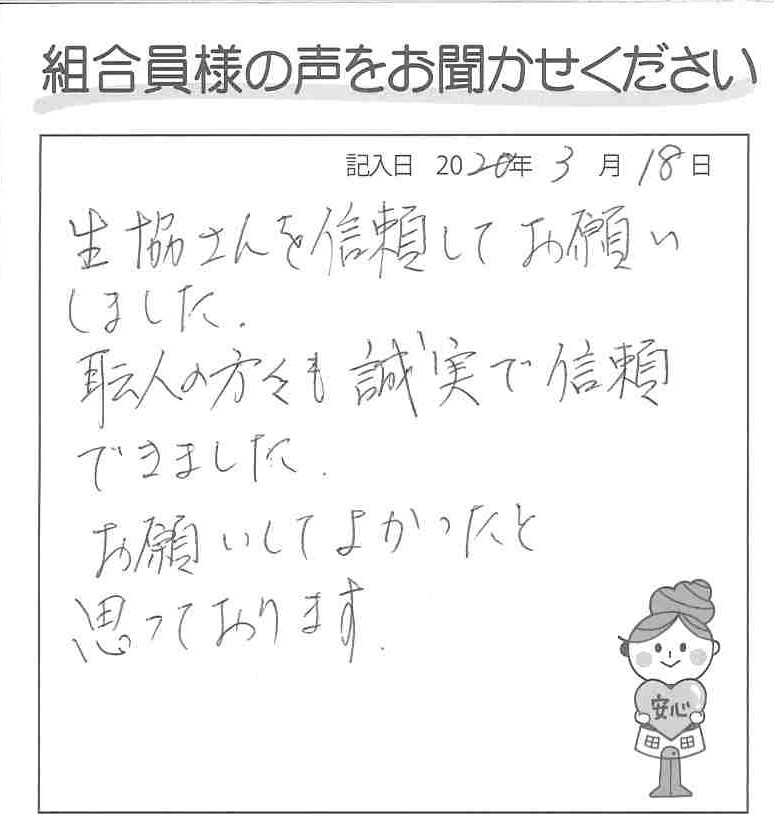 組合員様の声をお聞かせください
記入日 2020年 3月 18日
生協さんを信頼してお願い
しました.
耺人の方々も誠実で信頼
できました.
お願いしてよかったと
思っております.
安心